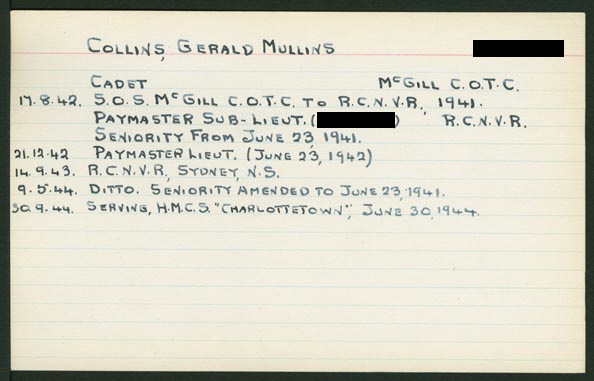 COLLINS, GERALD MULLINS
CADET McGILL C.O.T.C.
17.8.42. S.O.S. McGILL C.O.T.C. TO R.C.N.V.R., 1941.
PAYMASTER SUB-LIEUT. ( ) R.C.N.V.R.
SENIORITY FROM JUNE 23, 1941.
21.12.42 PAYMASTER LIEUT. (JUNE 23, 1942)
14.9.43. R.C.N.V.R., SYDNEY, N.S.
9.5.44. DITTO. SENIORITY AMENDED TO JUNE 23, 1941.
30.9.44. SERVING, H.M.C.S. "CHARLOTTETOWN", JUNE 30, 1944.